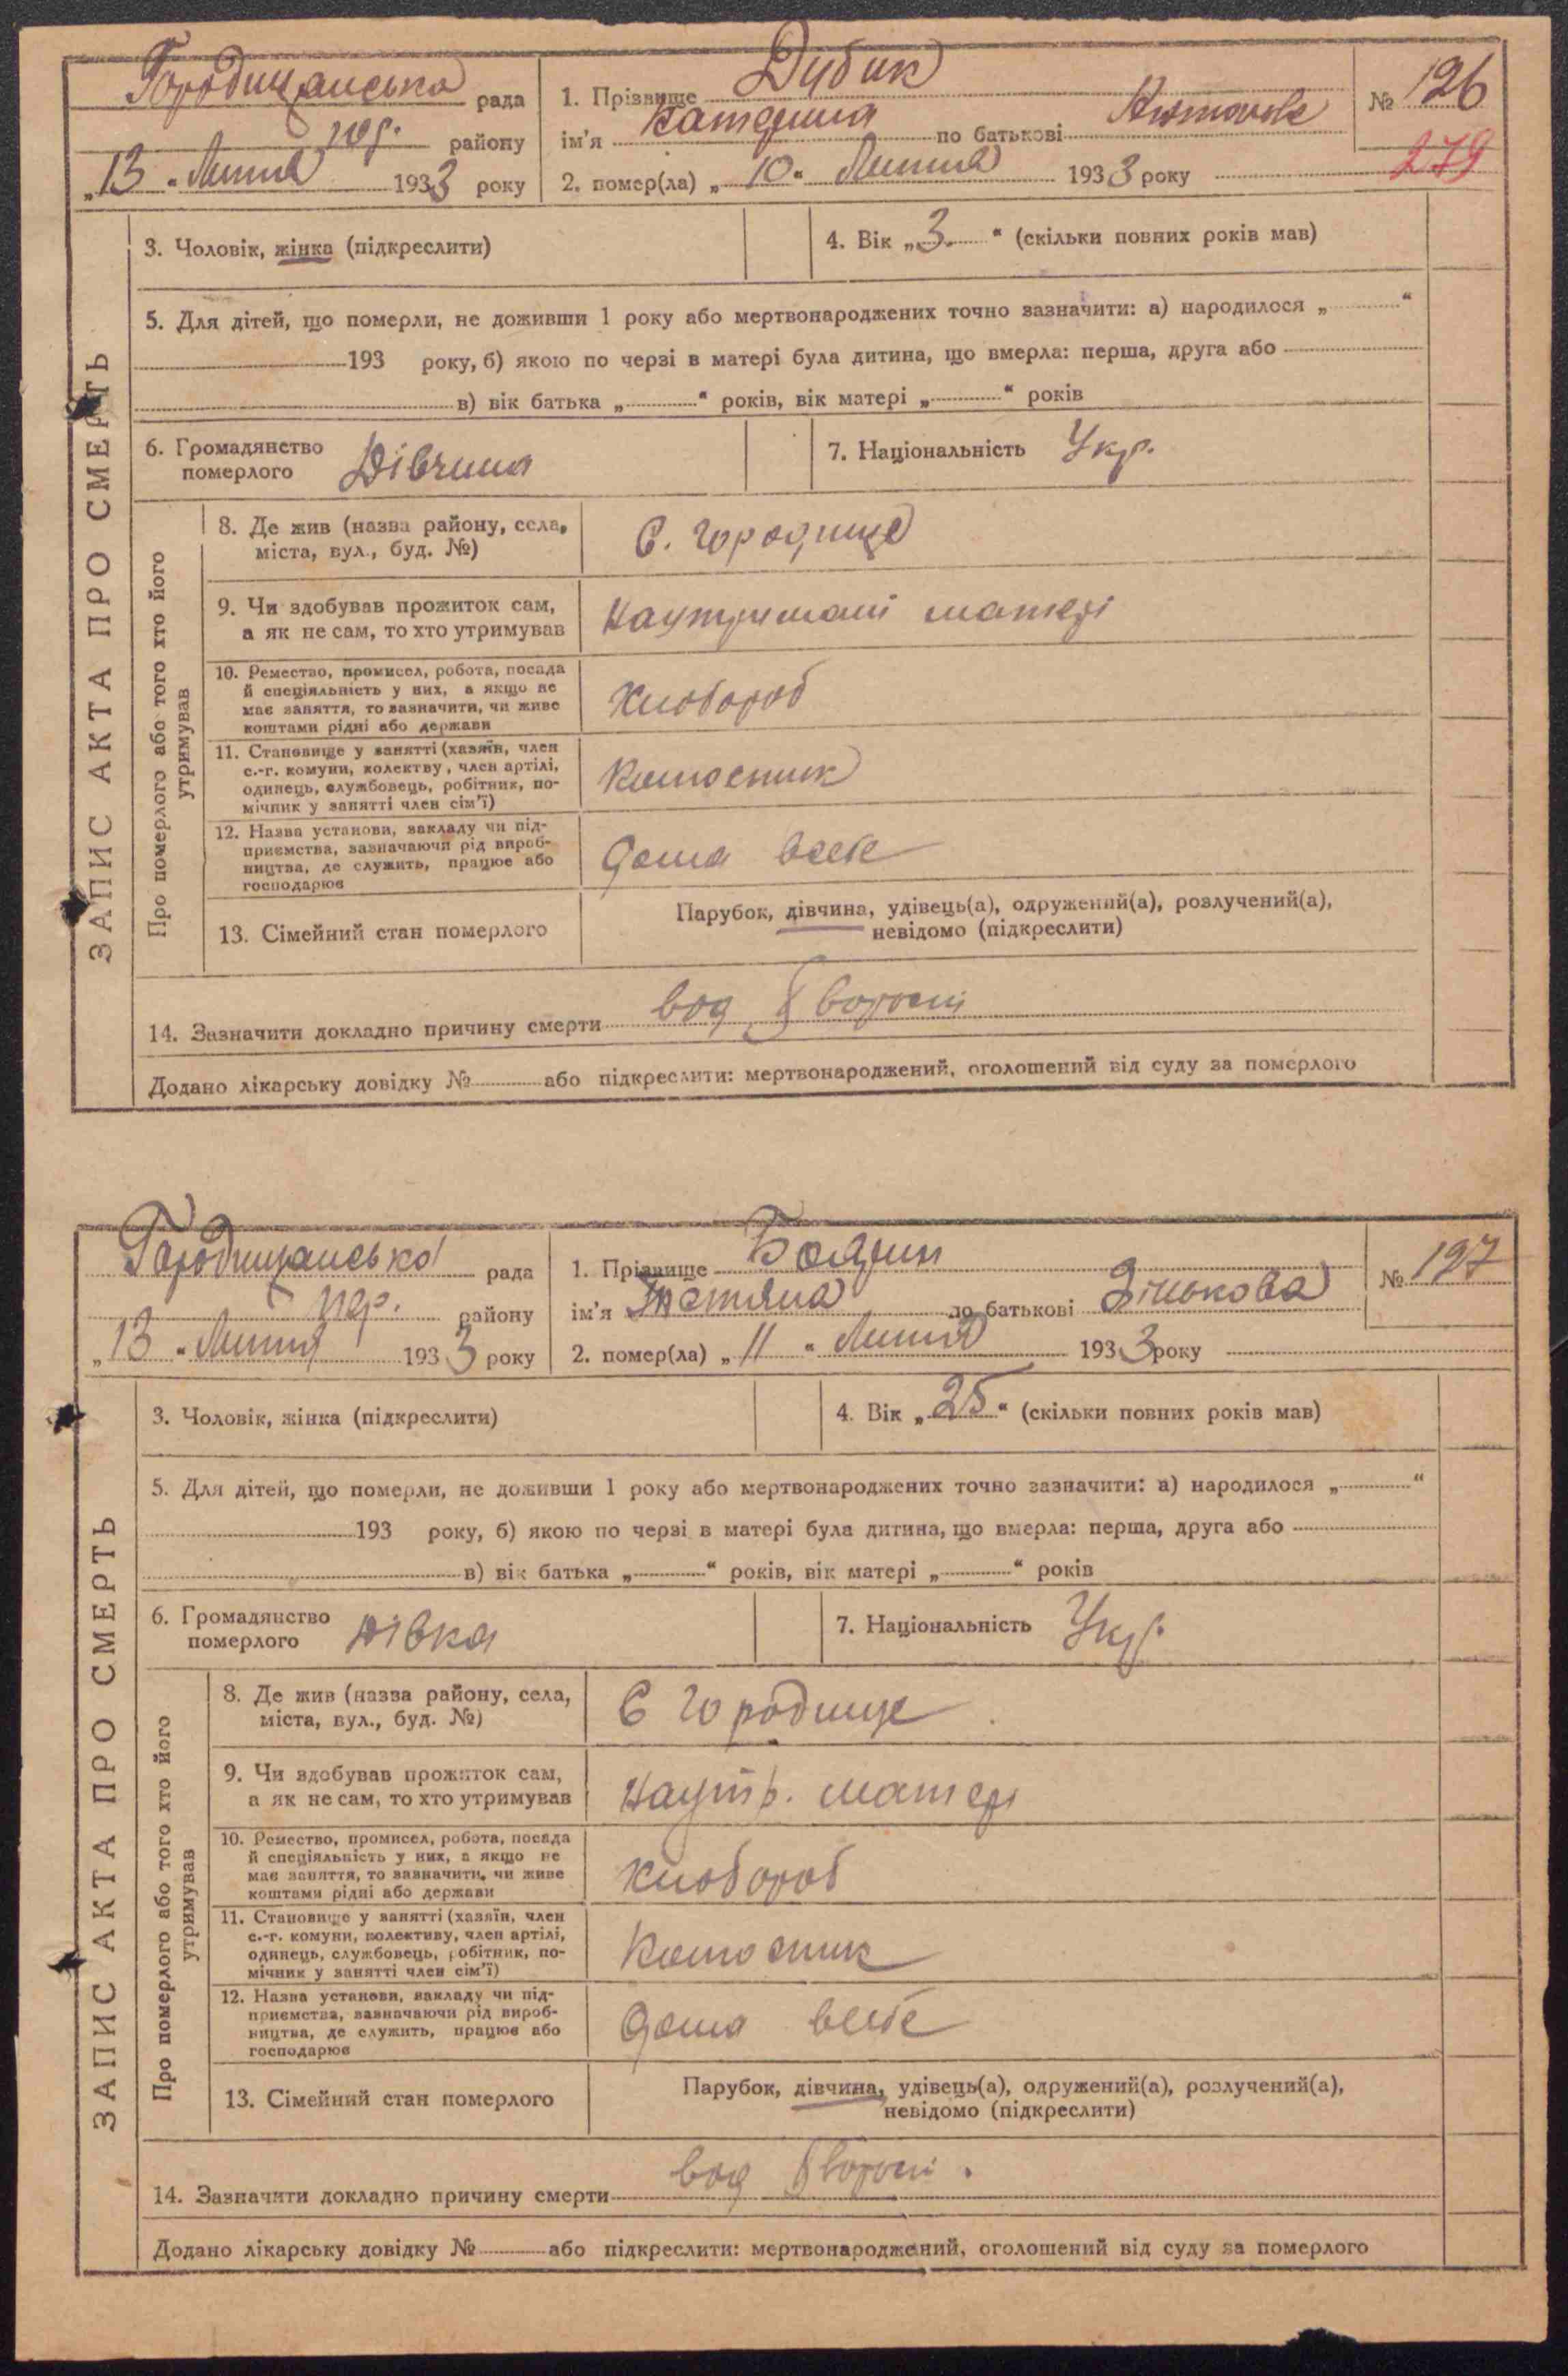 Городищанська рада
гор. району
„13“ Липня 1933 року
1. Прізвище Дубик
ім'я Катерина по батькові
2. помер(ла) „10“ Липня 1933 року
№ 196
279
ЗАПИС АКТА ПРО СМЕРТЬ
3. Чоловік, жінка (підкреслити)
4. Вік „3“ (скільки повних років мав)
5. Для дітей, що померли, не доживши 1 року або мертвонароджених точно зазначити: а) народилося „ “
193 року, б) якою по черзі в матері була дитина, що вмерла: перша, друга або
в) вік батька „ “ років, вік матері „ “ років
6. Громадянство
померлого Дівчина
7. Національність Укр.
Про померлого або того хто його
утримував
8. Де жив (назва району, села,
міста, вул., буд. №)
С. Городище
9. Чи здобував прожиток сам,
а як не сам, то хто утримував
Наутримані матері
10. Ремество, промисел, робота, посада
й спеціяльність у них, а якщо не
має заняття, то зазначити, чи живе
коштами рідні або держави
Хлібороб
11. Становище у занятті (хазяїн, член
с.-г. комуни, колективу, член артілі,
одинець, службовець, робітник, по-
мічник у занятті член сім'ї)
Колгоспник
12. Назва установи, закладу чи під-
приємства, зазначаючи рід вироб-
ництва, де служить, працює або
господарює
дома
13. Сімейний стан померлого
Парубок, дівчина, удівець(а), одружений(а), розлучений(а),
невідомо (підкреслити)
14. Зазначити докладно причину смерти
Додано лікарську довідку № або підкреслити: мертвонароджений, оголошений від суду за померлого
Городищанська рада
гор. району
„13“ Липня 1933 року
1. Прізвище Боярин
ім'я Тетяна по батькові Зінькова
2. помер(ла) „11“ Липня 1933 року
№ 197
ЗАПИС АКТА ПРО СМЕРТЬ
3. Чоловік, жінка (підкреслити)
4. Вік „25“ (скільки повних років мав)
5. Для дітей, що померли, не доживши 1 року або мертвонароджених точно зазначити: а) народилося „ “
193 року, б) якою по черзі в матері була дитина, що вмерла: перша, друга або
в) вік батька „ “ років, вік матері „ “ років
6. Громадянство
померлого Дівка
7. Національність Укр.
Про померлого або того хто його
утримував
8. Де жив (назва району, села,
міста, вул., буд. №)
С Городище
9. Чи здобував прожиток сам,
а як не сам, то хто утримував
Наутр. матері
10. Ремество, промисел, робота, посада
й спеціяльність у них, а якщо не
має заняття, то зазначити, чи живе
коштами рідні або держави
Хлібороб
11. Становище у занятті (хазяїн, член
с.-г. комуни, колективу, член артілі,
одинець, службовець, робітник, по-
мічник у занятті член сім'ї)
Колгоспник
12. Назва установи, закладу чи під-
приємства, зазначаючи рід вироб-
ництва, де служить, працює або
господарює
дома
13. Сімейний стан померлого
Парубок, дівчина, удівець(а), одружений(а), розлучений(а),
невідомо (підкреслити)
14. Зазначити докладно причину смерти
Додано лікарську довідку № або підкреслити: мертвонароджений, оголошений від суду за померлого